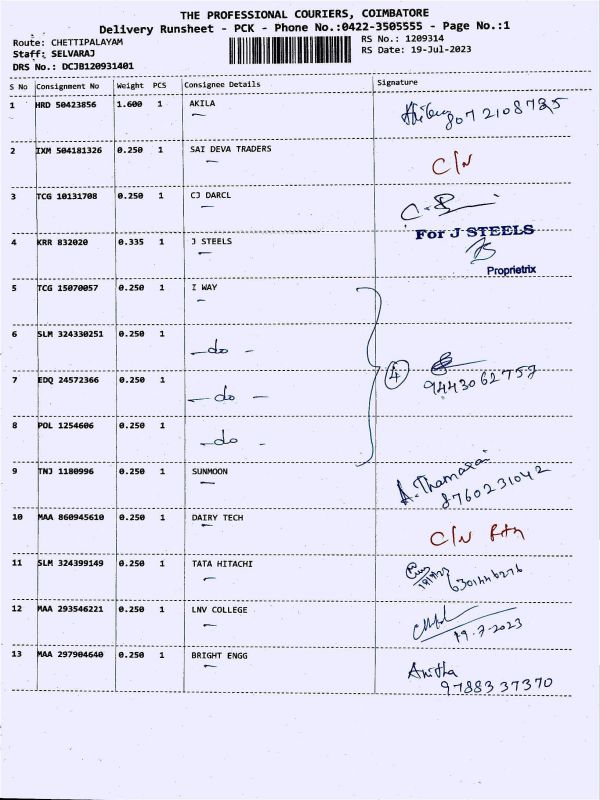 THE PROFESSIONAL COURIERS, COIMBATORE
Delivery Runsheet - PCK - Phone No.:0422-3505555 - Page No.:1
Route: CHETTIPALAYAM RS No.: 1209314
Staff: SELVARAJ RS Date: 19-Jul-2023
DRS No.: DCJB120931401
S No Consignment No Weight PCS Consignee Details Signature
1 HRD 50423856 1.600 1 AKILA
2 IXM 504181326 0.250 1 SAI DEVA TRADERS C/N
3 TCG 10131708 0.250 1 CJ DARCL
For J STEELS
4 KRR 832020 0.335 1 J STEELS
Proprietrix
5 TCG 15070057 0.250 1 I WAY
6 SLM 324330251 0.250 1 -do-
7 EDQ 24572366 0.250 1 -do- 4 9443062752
8 POL 1254606 0.250 1 -do-
9 TNJ 1180996 0.250 1 SUNMOON A. Thamarai
8760231042
10 MAA 860945610 0.250 1 DAIRY TECH C/N
11 SLM 324399149 0.250 1 TATA HITACHI
6301446276
12 MAA 293546221 0.250 1 LNV COLLEGE
19.7-2023
13 MAA 297904640 0.250 1 BRIGHT ENGG Anitha
9788337370